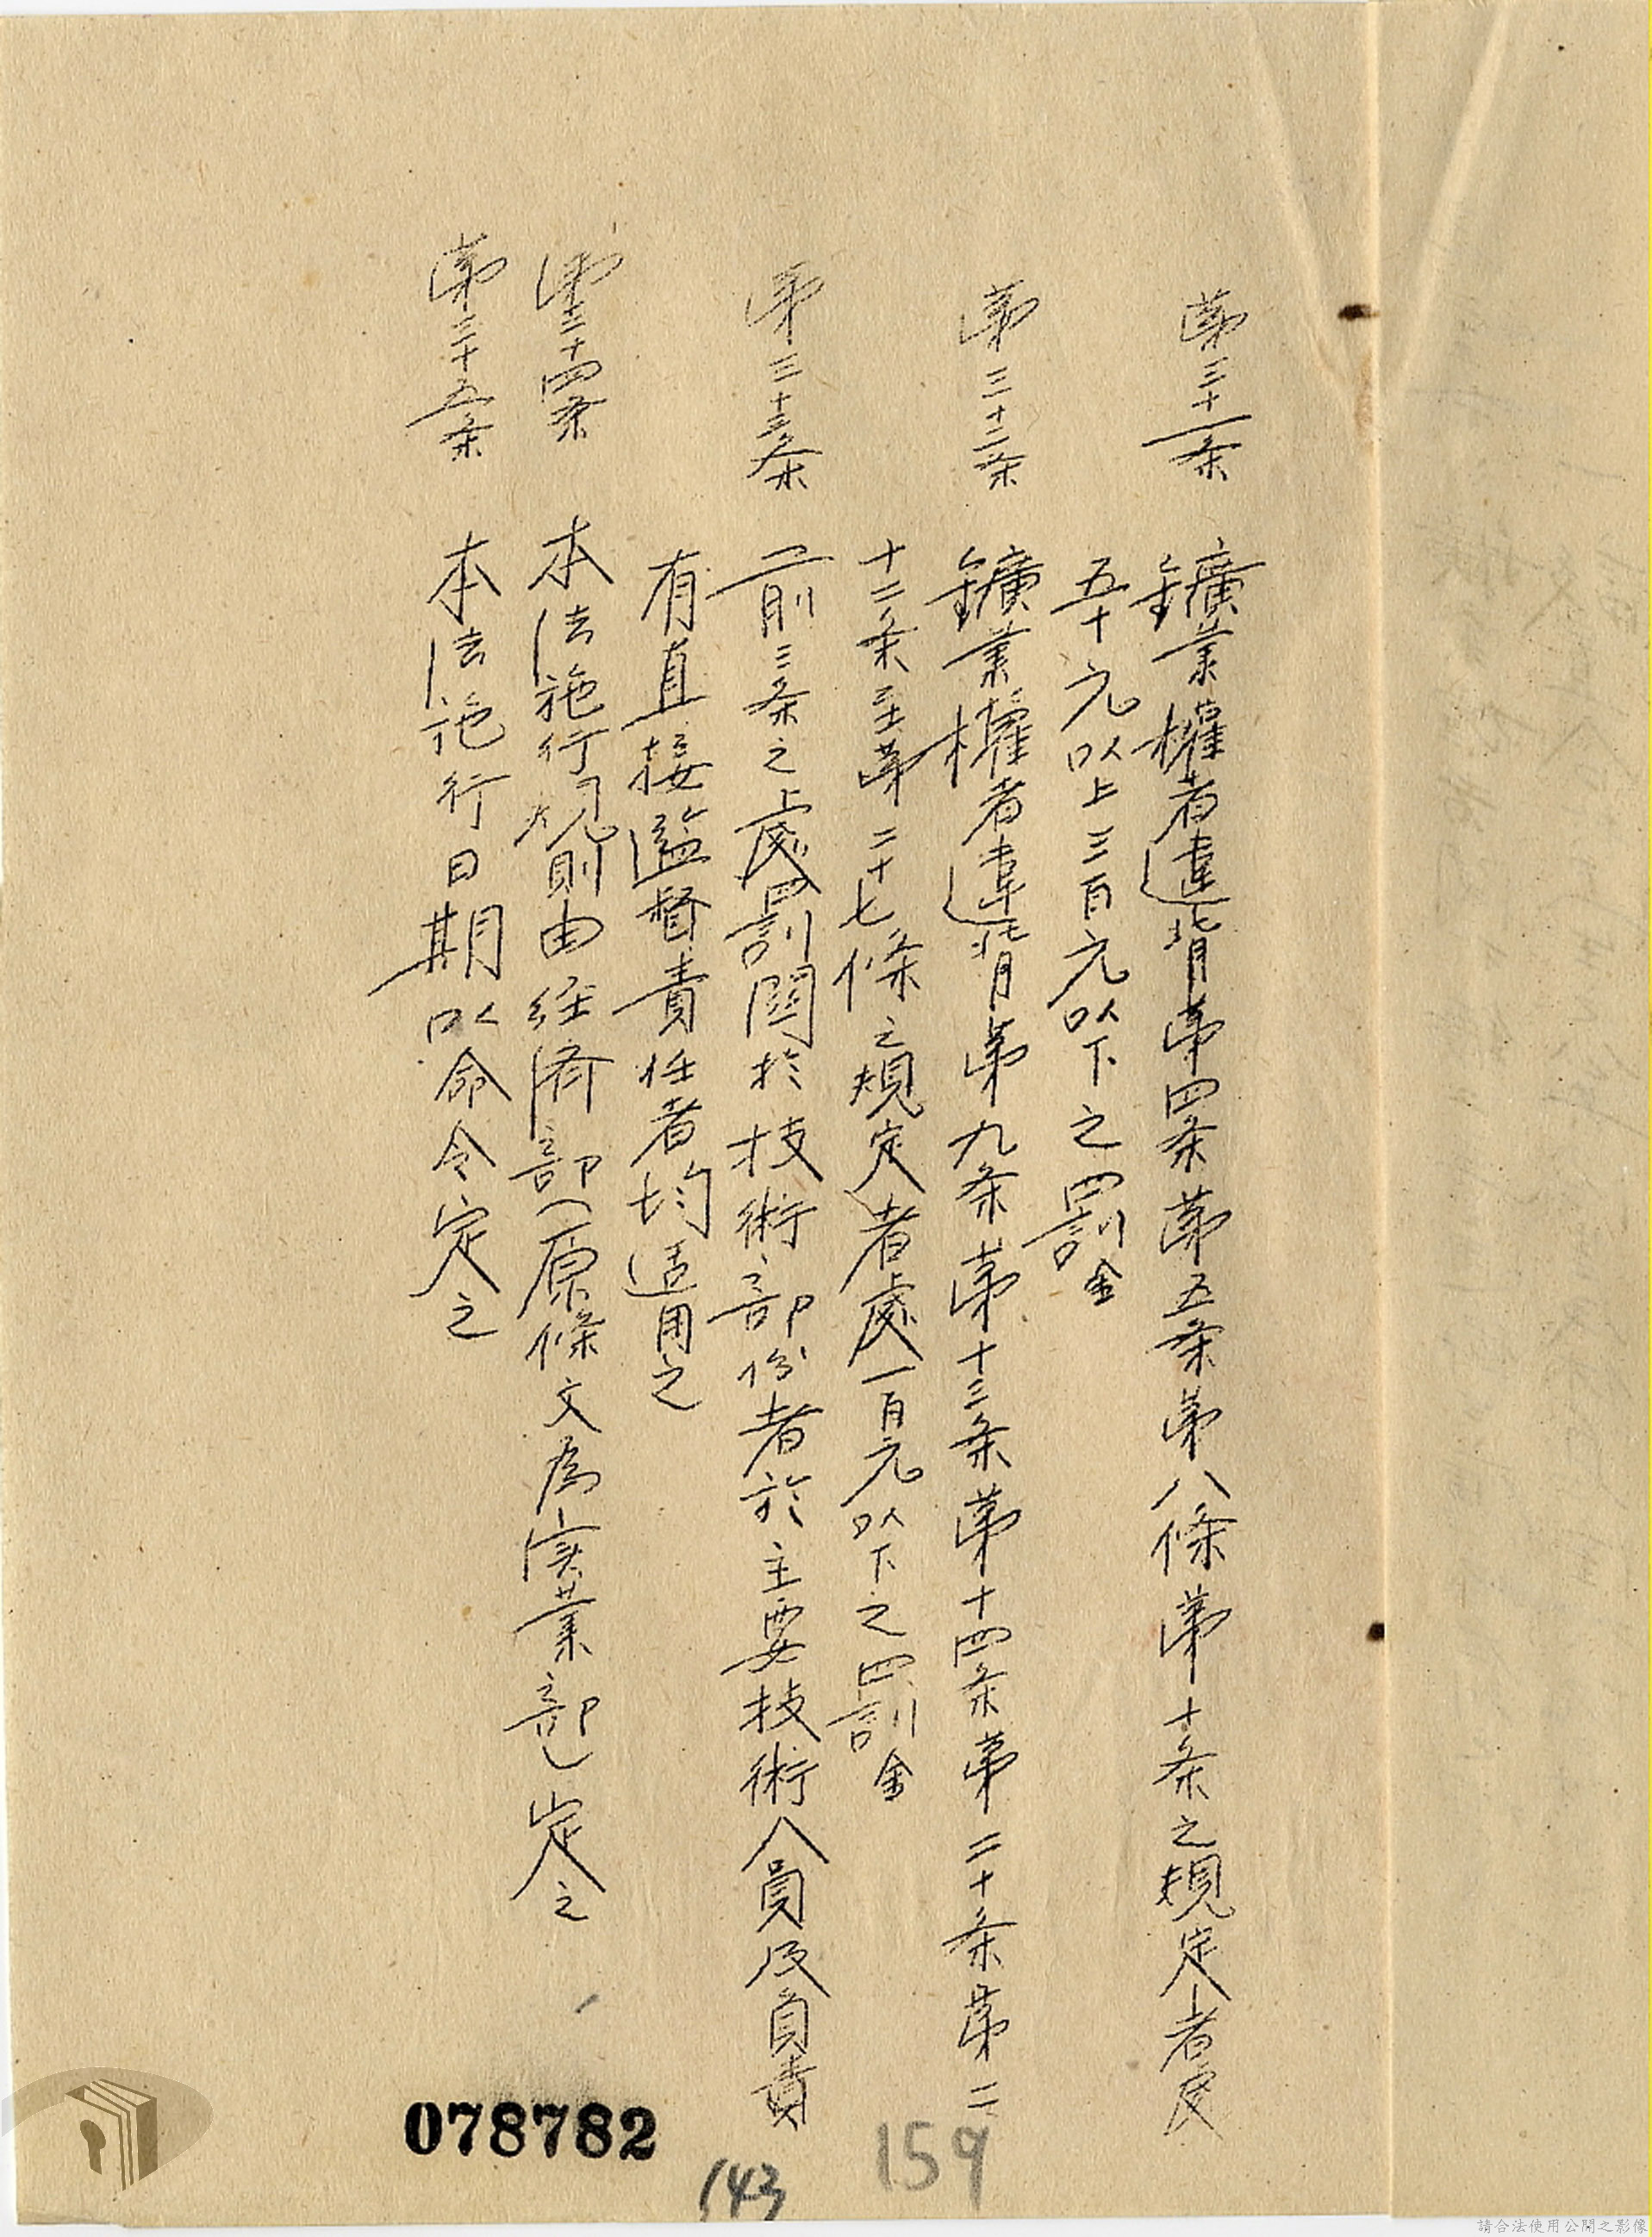 第三十一条　鑛業權者違背第四条第五条第八條第十条之規定者處
五十元以上三百元以下之罰金
第三十二条　鑛業權者違背第九条第十三条第十四条第二十条第二
十二条至第二十七條之規定者處一百元以下之罰金
第三十三条　前三条之處罰關於技術部份者於主要技術人員及負責
有直接監督責任者均适用之
第三十四条　本法施行規則由経済部(原條文為实業部)定之
第三十五条　本法施行日期以命令定之
078782
143
159
請合法使用公開之影像